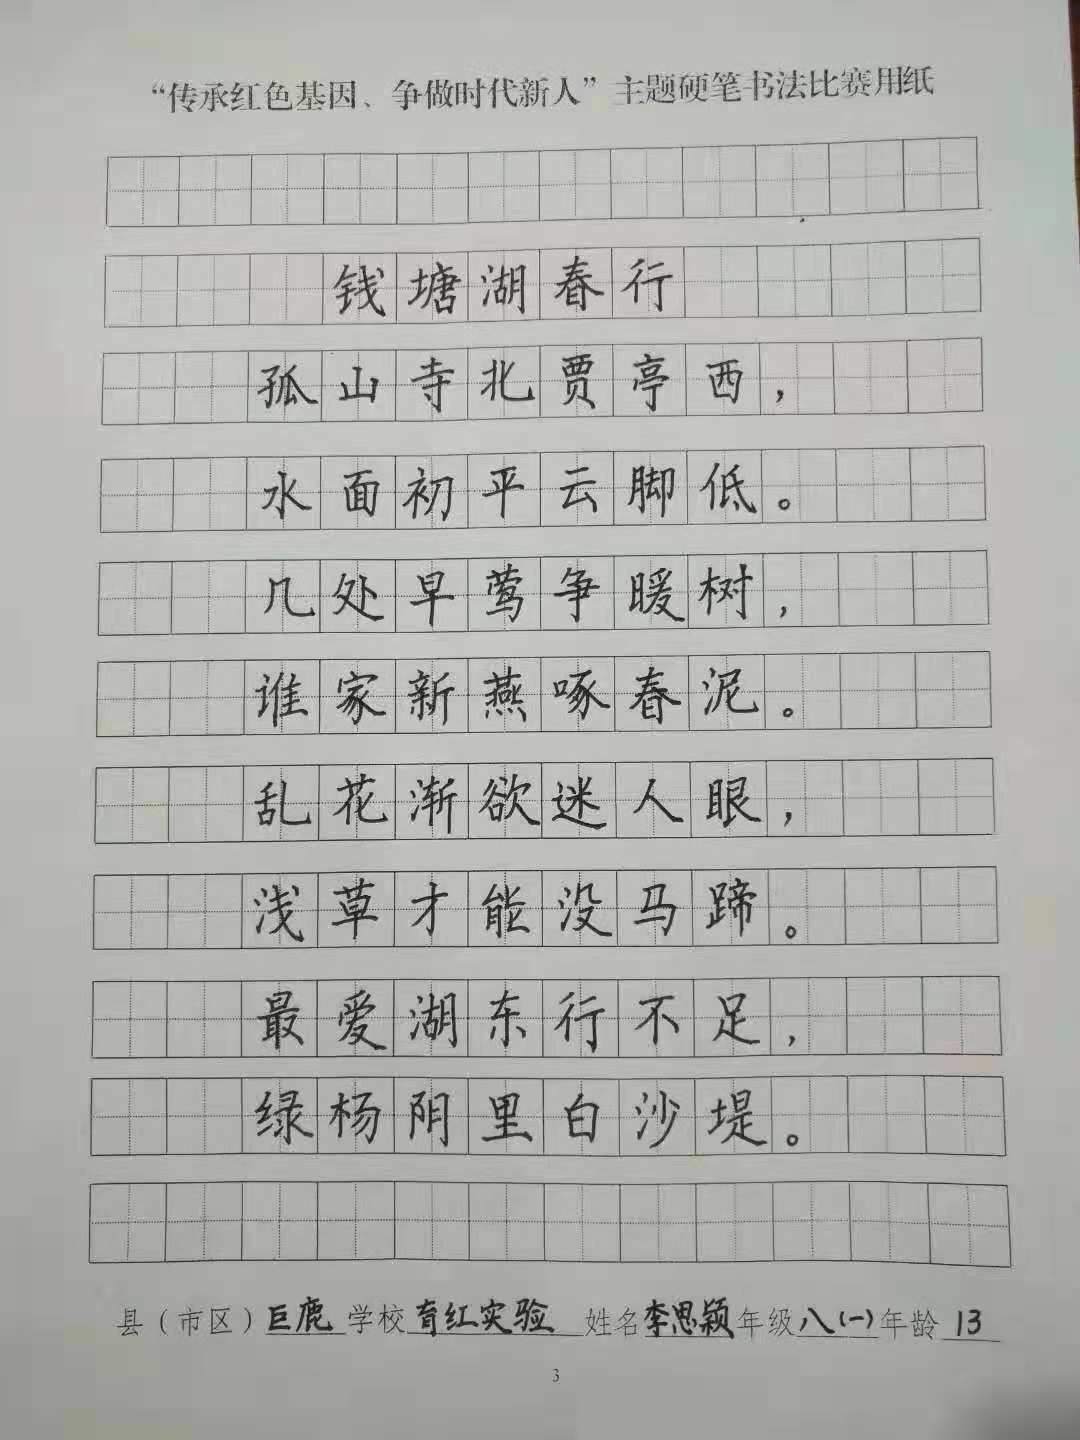 “传承红色基因、争做时代新人”主题硬笔书法比赛用纸
钱塘湖春行
孤山寺北贾亭西，
水面初平云脚低。
几处早莺争暖树，
谁家新燕啄春泥。
乱花渐欲迷人眼，
浅草才能没马蹄。
最爱湖东行不足，
绿杨阴里白沙堤。
县（市区）巨鹿 学校 育红实验 姓名 李思颖 年级 八(一) 年龄 13
3